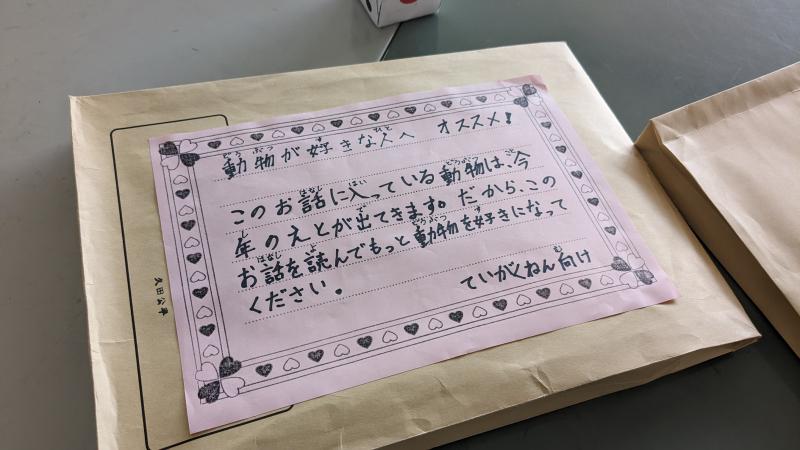 動物が好きな人へ オススメ!
このお話に入っている動物は、今
年のえとが出てきます。だから、この
お話を読んでもっと動物を好きになって
ください。
ていがくねん向け